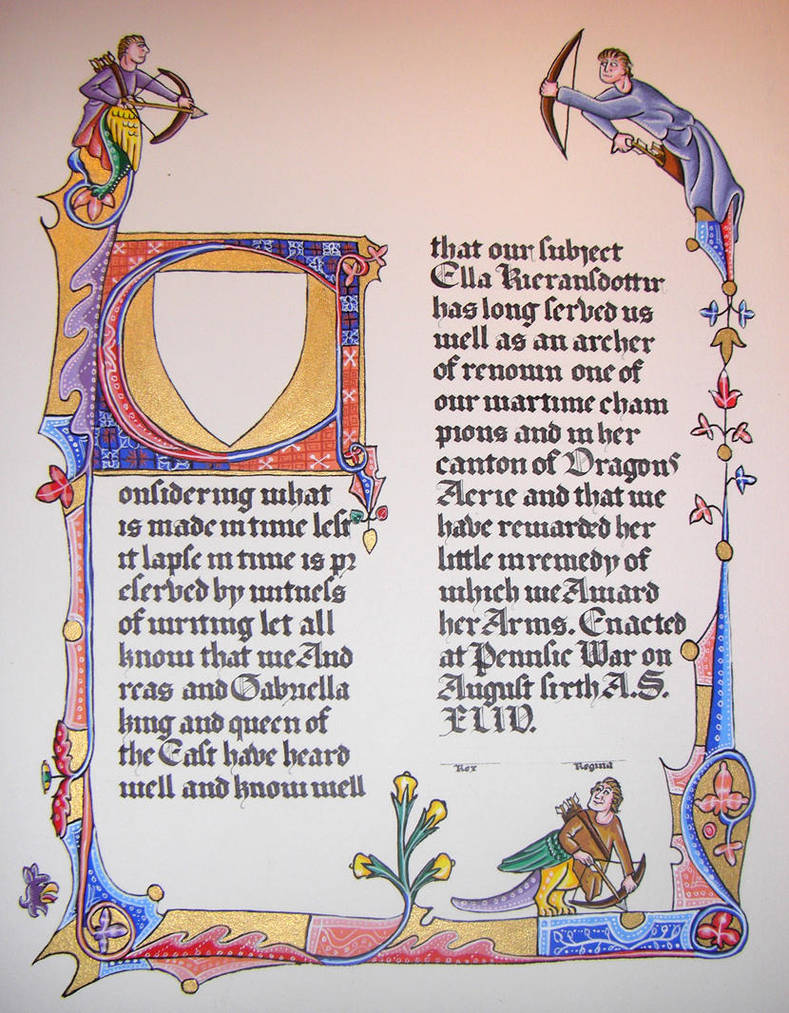 Considering what
is made in time lest
it lapse in time is pr
eserved by witness
of writing let all
know that we And
reas and Gabriella
king and queen of
the East have heard
well and know well
that our subject
Ella Kieransdottir
has long served us
well as an archer
of renown one of
our wartime cham
pions and in her
canton of Dragons
Aerie and that we
have rewarded her
little in remedy of
which we Award
her Arms. Enacted
at Pennsic War on
August sixth A.S.
XLIV.
Rex Regina